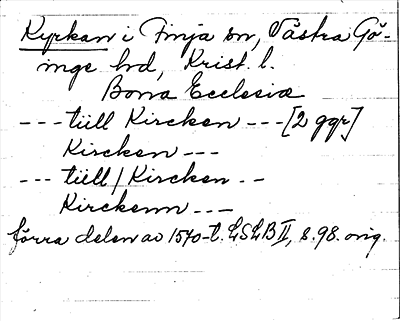 Kyrkan i Finja sn, Västra Gö-
inge hd, Krist. l.
Bona Ecclesiæ
--- tiill Kircken --- [2 ggr]
Kircken ---
--- tiill / Kircken --
Kirckenn ---
förra delen av 1570-t. LSLB II, s. 98. orig.